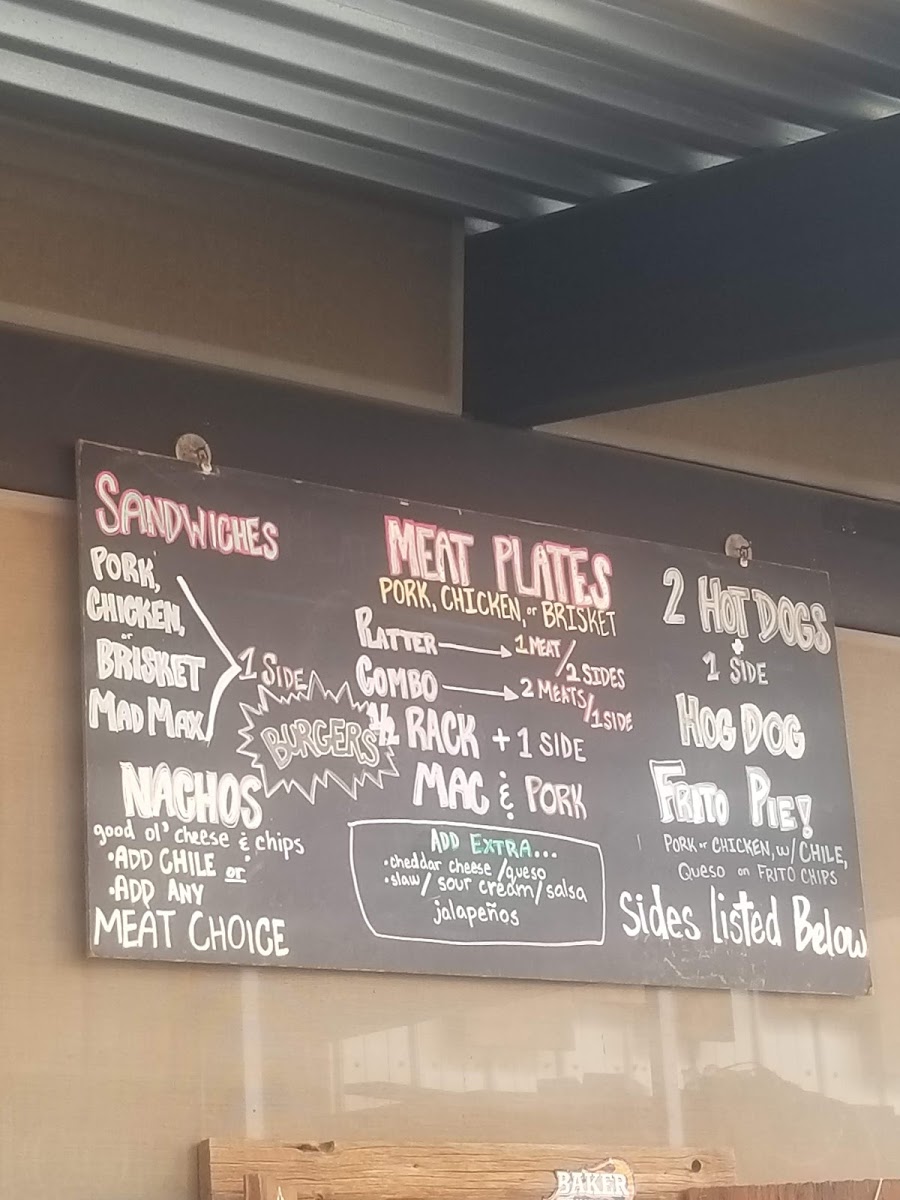 SANDWICHES
PORK,
CHICKEN,
or
BRISKET
MAD MAX
1 SIDE
BURGERS
NACHOS
good ol' cheese & chips
• ADD CHILE or
• ADD ANY
MEAT CHOICE
MEAT PLATES
PORK, CHICKEN, or BRISKET
PLATTER → 1 MEAT / 2 SIDES
COMBO → 2 MEATS / 1 SIDE
½ RACK + 1 SIDE
MAC & PORK
ADD EXTRA...
• cheddar cheese / queso
• slaw / sour cream / salsa
jalapeños
2 HOT DOGS
+
1 SIDE
HOG DOG
FRITO PIE!
PORK or CHICKEN, w/ CHILE,
QUESO on FRITO CHIPS
Sides listed Below
BAKER